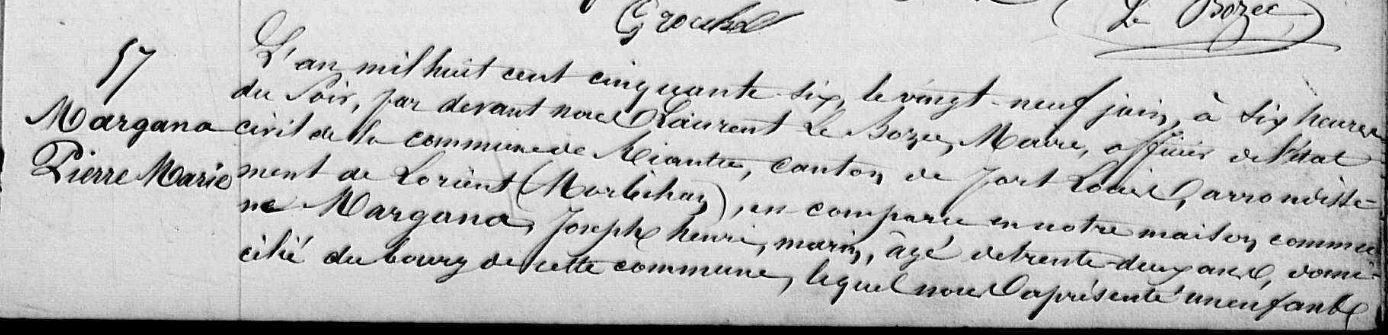 Le Bozec
57
Margana
Pierre Marie
L'an mil huit cent cinquante six, le vingt neuf juin, à six heures
du soir, par devant nous Laurent Le Bozec, Maire, officier de l'état
civil de la commune de Riantec, canton de Port Louis, arrondisse-
ment de Lorient (Morbihan), en comparu en notre maison commu
ne Margana, Joseph henri, marin, âgé de trente deux ans, domi-
cilié du bourg de cette commune, lequel nous a présenté un enfant